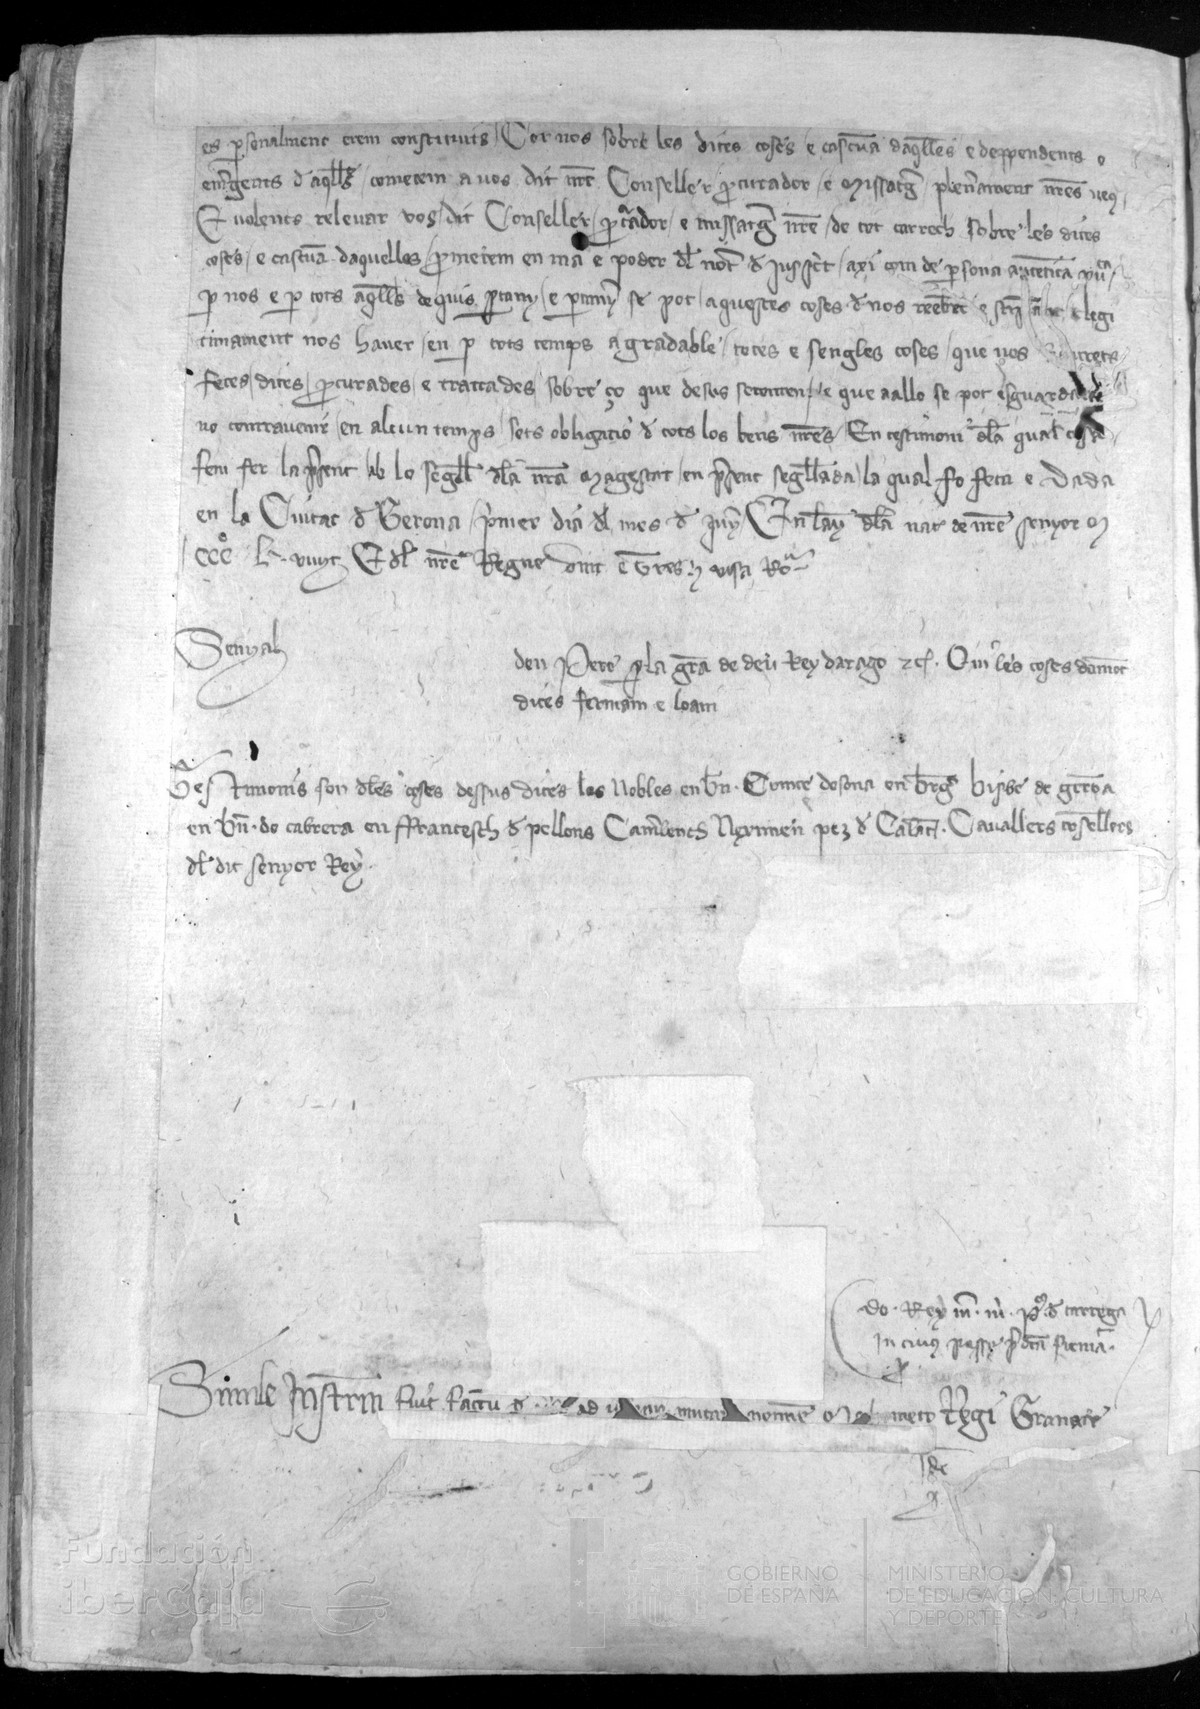 es p̱sonalment erem constituits / Cor nos sobre les dites coses e cascuna daq̄lles e deppendents o
em̄gents d aq̄lls / cometem a uos dit nr̄e Conseller p̱curador / e Missatḡ / plen̄ament nr̄es ueus /
E uolents releuar uos / dit Conseller / p̱curador / e missatḡ nr̄e / de tot carrech sobre les dites
coses / e cascuna daquelles / p̱metem en ma e poder dl not̄ d jusscrit / axi com de p̱sona autentica
p̱ nos e p̱ tots aq̄lls de quis p̱tany / e p̱tanyer se pot / aquestes coses d nos reebent e legi
timament nos hauer / en p̱ tots temps agradable / totes e sengles coses / que uos
fetes / dites / p̱curades e trattades / sobre ço que desus se conten / e que a allo se pot esguardar
no contrauenir / en alcun temps / sots obligacio d tots los bens nr̄es / En testimoni dla qual cosa
fem fer la p̄sent ab lo segell dla nr̄a Magestat / en p̄sent segellada / la qual fo feta e Dada
en la Ciutat d Gerona / p̄mer dia dl mes d juny En lany dla nat de nr̄e senyor M
CCCo La vuyt E dl nr̄e Regne vint e Tres / visa Ro
Senyal
den Pere p̱la gr̄a de deu Rey darago etc̄. Qui les coses damont
dites fermam e loam
Testimonis son dles coses dessus dites los Nobles en bn̄. Comte dosona en br̄g Bisbe de gerōa
en bn̄. de cabrera en ffrancesch d pellons Cam̄lenchs Neximen perez d Calat. Cauallers cōsellers
dl dit senyor Rey.
do. Rey m. de cartega
In cuius posse p̄dcā firma.
Simile Instrm fuit factu ad mutato nomine Regi Granate
GOBIERNO
DE ESPAÑA
MINISTERIO
DE EDUCACIÓN, CULTURA
Y DEPORTE
Fundación
iberCaja